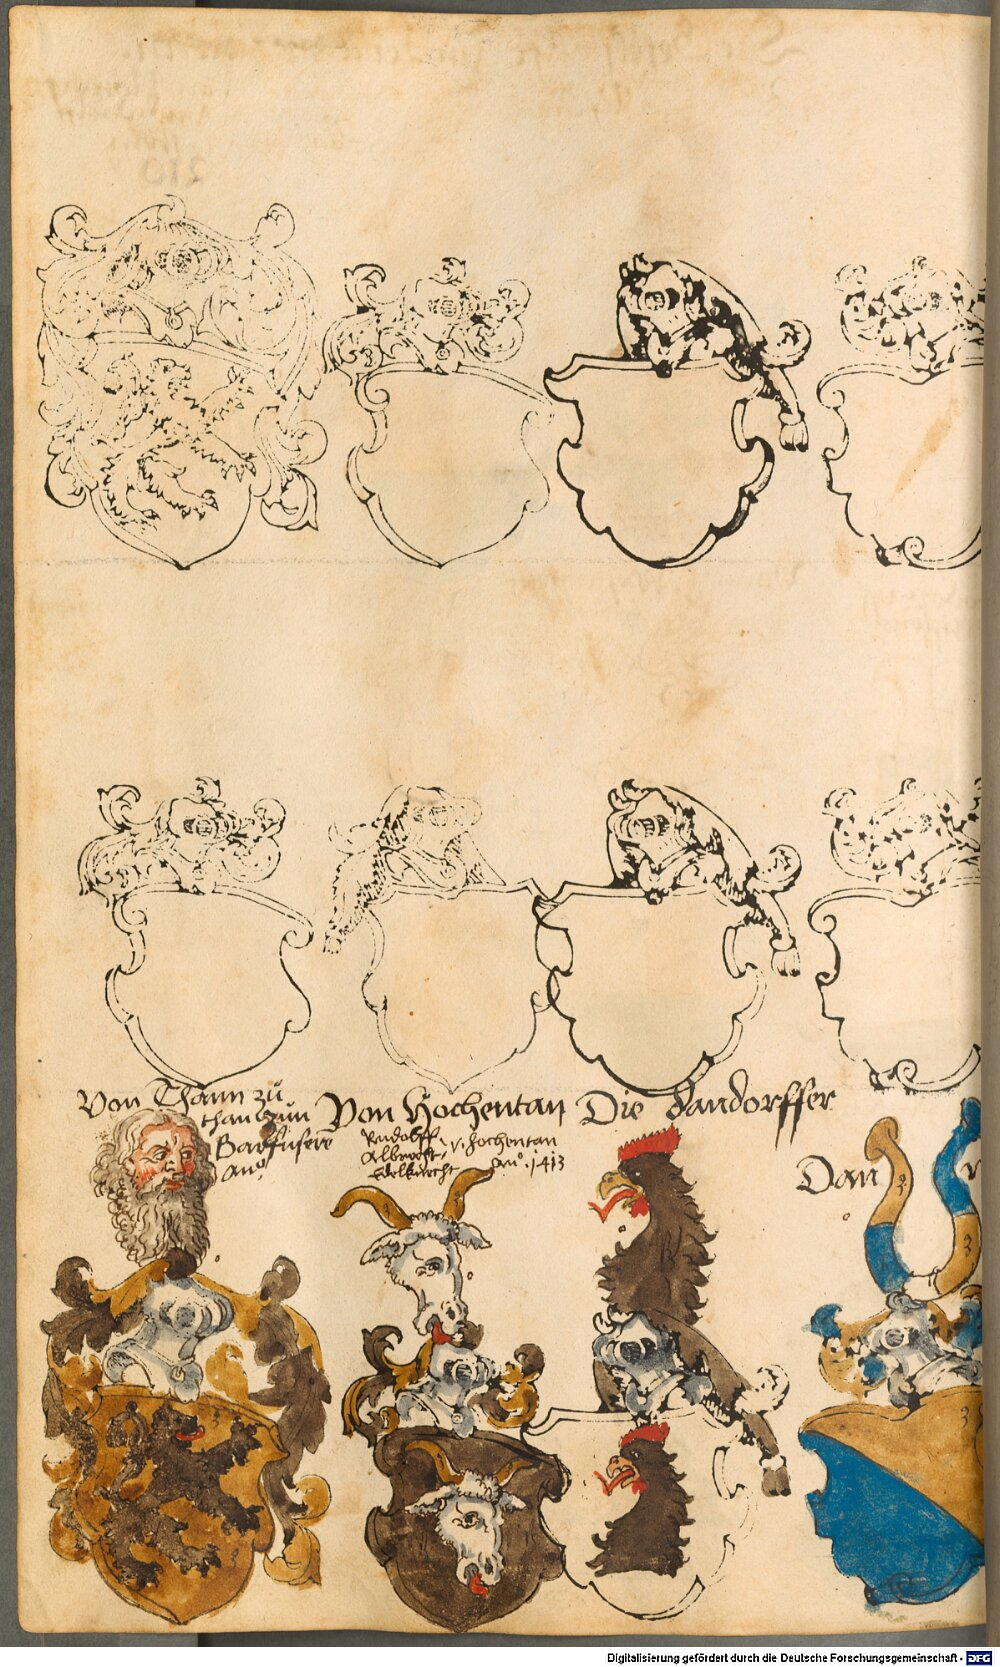 Von Thann zů
than zun
Barfuser
Ano.
Von Hochentan
Rudolff
Albrecht v. Hochentan
Edelknecht Ano. 1413
Die Dandorffer
Dan
Digitalisierung gefördert durch die Deutsche Forschungsgemeinschaft - DFG